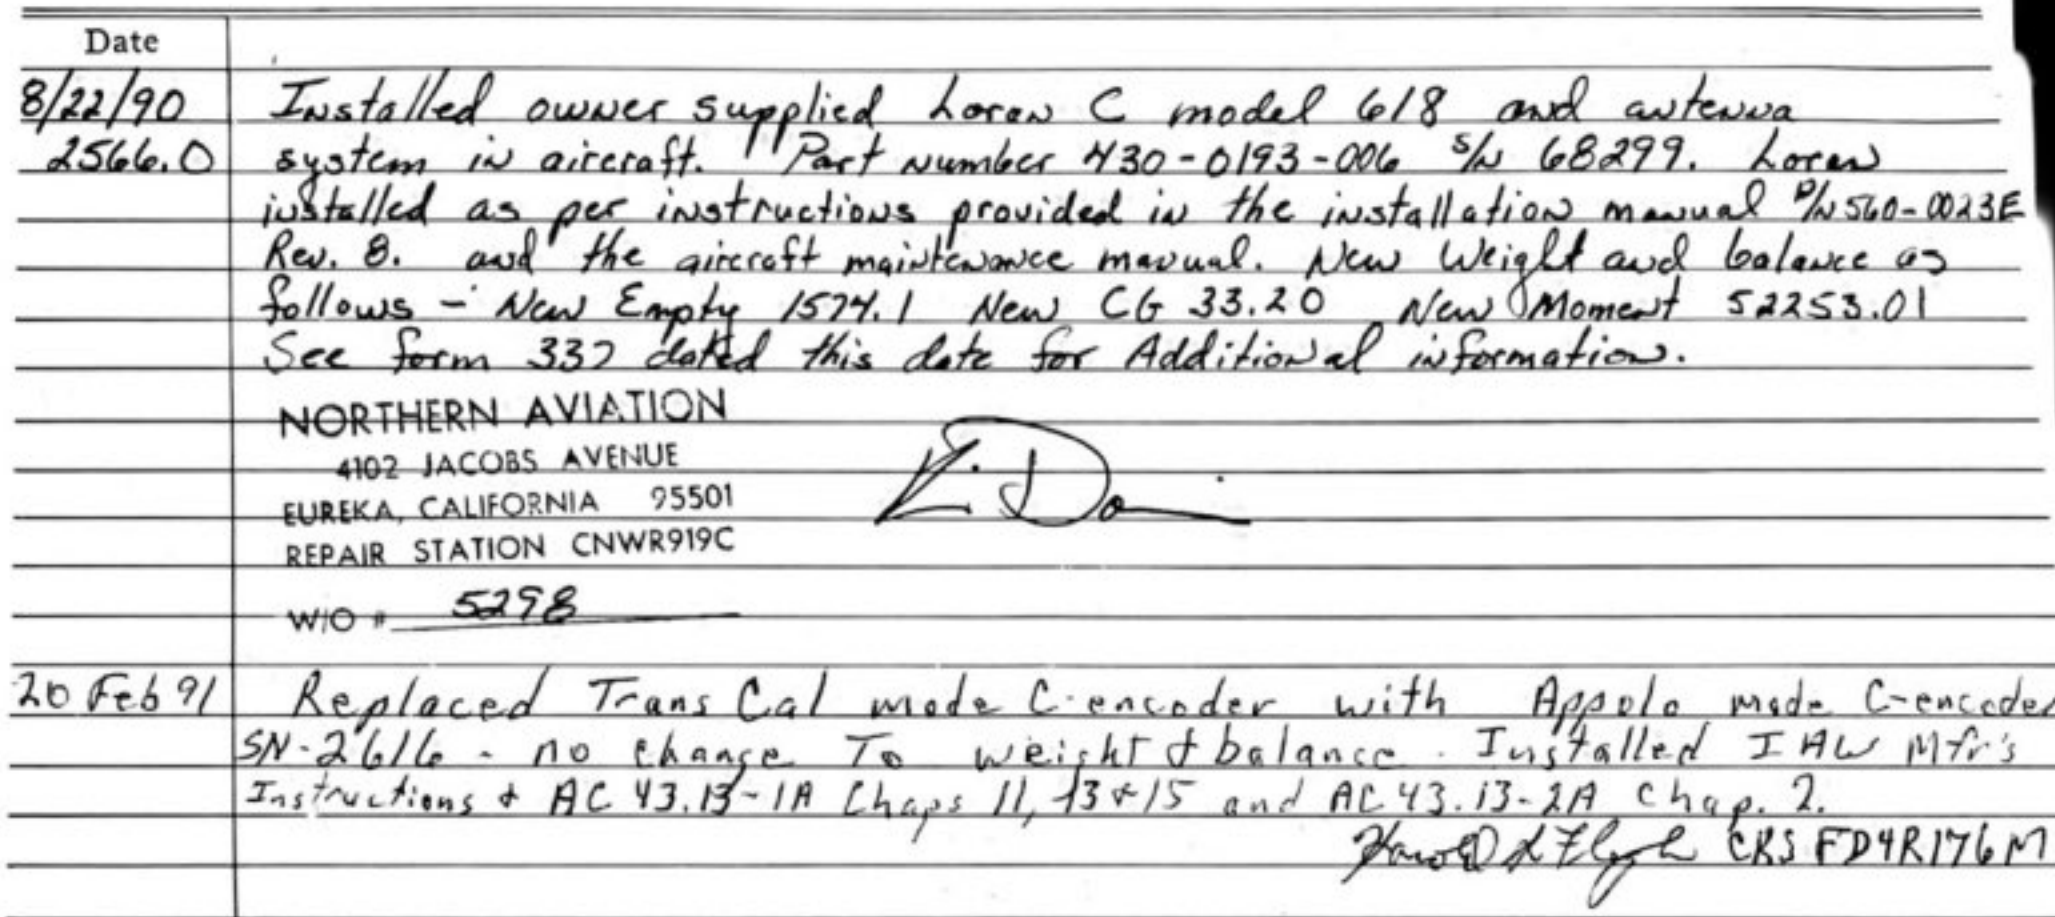 Date
8/22/90 Installed owner supplied Loran C model 618 and antenna
2566.0 system in aircraft. Part number 430-0193-006 S/N 68299. Loran
installed as per instructions provided in the installation manual P/N 560-0023E
Rev. 8. and the aircraft maintenance manual. New Weight and balance as
follows - New Empty 1574.1 New CG 33.20 New Moment 52253.01
See form 337 dated this date for Additional information.
NORTHERN AVIATION
4102 JACOBS AVENUE
EUREKA, CALIFORNIA 95501
REPAIR STATION CNWR919C
W/O # 5298
20 Feb 91 Replaced Trans Cal mode C-encoder with Appolo mode C-encoder
SN-2616 - no change To weight & balance. Installed IAW Mfr's
Instructions & AC 43.13-1A Chaps 11, 13 & 15 and AC 43.13-2A Chap. 2.
CRS FD4R176M